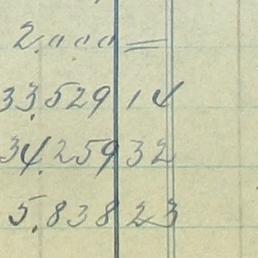 2.000 =
33.529 14
34.259 32
5.838 23